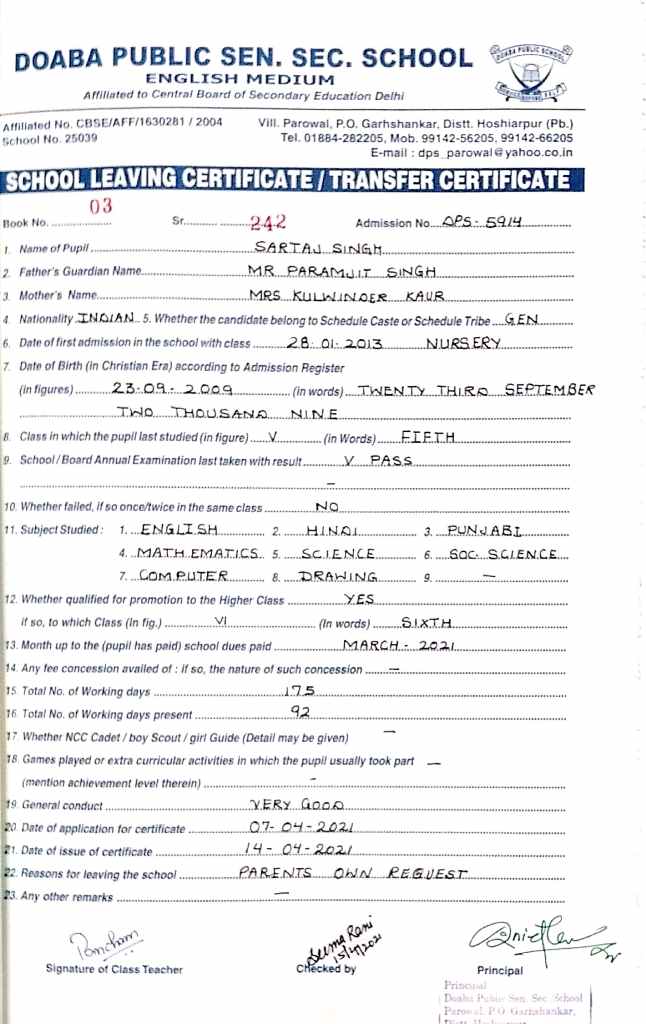 DOABA PUBLIC SEN. SEC. SCHOOL
ENGLISH MEDIUM
Affiliated to Central Board of Secondary Education Delhi
DOABA PUBLIC SCHOOL
Affiliated No. CBSE/AFF/1630281 / 2004
School No. 25039
Vill. Parowal, P.O. Garhshankar, Distt. Hoshiarpur (Pb.)
Tel. 01884-282205, Mob. 99142-56205, 99142-66205
E-mail : dps_parowal@yahoo.co.in
SCHOOL LEAVING CERTIFICATE / TRANSFER CERTIFICATE
Book No. 03 Sr. 242 Admission No. DPS-5914
1. Name of Pupil SARTAJ SINGH
2. Father's Guardian Name MR PARAMJIT SINGH
3. Mother's Name MRS KULWINDER KAUR
4. Nationality INDIAN 5. Whether the candidate belong to Schedule Caste or Schedule Tribe GEN
6. Date of first admission in the school with class 28-01-2013 NURSERY
7. Date of Birth (in Christian Era) according to Admission Register
(in figures) 23-09-2009 (in words) TWENTY THIRD SEPTEMBER
TWO THOUSAND NINE
8. Class in which the pupil last studied (in figure) V (in Words) FIFTH
9. School / Board Annual Examination last taken with result V PASS
—
10. Whether failed, if so once/twice in the same class NO
11. Subject Studied : 1. ENGLISH 2. HINDI 3. PUNJABI
4. MATHEMATICS 5. SCIENCE 6. SOC. SCIENCE
7. COMPUTER 8. DRAWING 9. —
12. Whether qualified for promotion to the Higher Class YES
if so, to which Class (In fig.) VI (In words) SIXTH
13. Month up to the (pupil has paid) school dues paid MARCH - 2021
14. Any fee concession availed of : if so, the nature of such concession —
15. Total No. of Working days 175
16. Total No. of Working days present 92
17. Whether NCC Cadet / boy Scout / girl Guide (Detail may be given) —
18. Games played or extra curricular activities in which the pupil usually took part —
(mention achievement level therein) -
19. General conduct VERY GOOD
20. Date of application for certificate 07-04-2021
21. Date of issue of certificate 14-04-2021
22. Reasons for leaving the school PARENTS OWN REQUEST
23. Any other remarks —
Seema Rani
15/4/2021
Signature of Class Teacher Checked by Principal
Principal
Doaba Public Sen. Sec. School
Parowal, P.O. Garhshankar,
Distt. Hoshiarpur